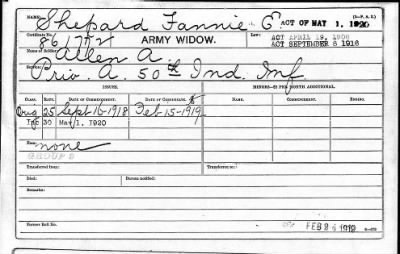 Name: Shepard Fannie G ACT OF MAY 1, 1920 (3-P. A. I.)
Certificate No. 861772 ARMY WIDOW. Law: ACT APRIL 19, 1908
ACT SEPTEMBER 8 1916
Name of Soldier: Allen A.
Service: Priv. A. 50th Ind. Inf.
ISSUES. MINORS—$2 PER MONTH ADDITIONAL
CLASS. RATE. DATE OF COMMENCEMENT. DATE OF CERTIFICATE. NAME. COMMENCED. ENDING.
Orig 25 Sept 16-1918 Feb-15-1919
30 May 1, 1920
none
GROUP 2
Transferred from: Transferred to:
Died: Bureau notified:
Remarks:
Former Roll No. FEB 24 1919